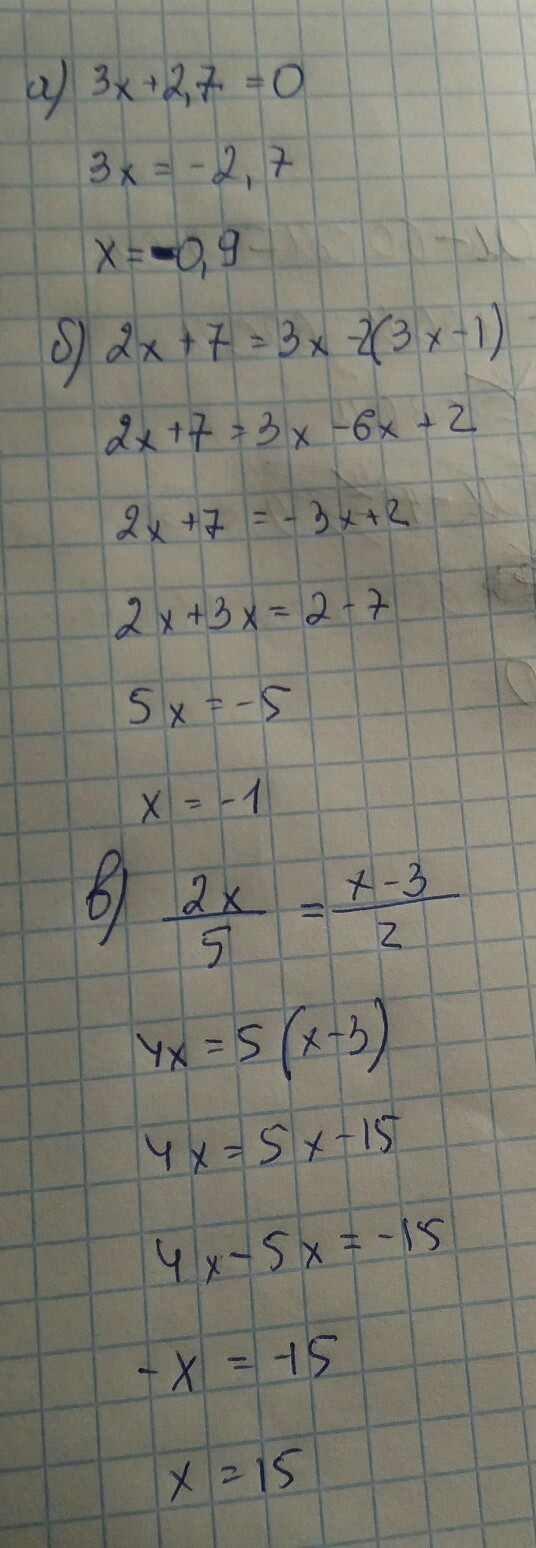 а) 3x+2,7=0
3x=-2,7
x=-0,9
б) 2x+7=3x-2(3x-1)
2x+7=3x-6x+2
2x+7=-3x+2
2x+3x=2-7
5x=-5
x=-1
в) 2x/5=x-3/2
4x=5(x-3)
4x=5x-15
4x-5x=-15
-x=-15
x=15